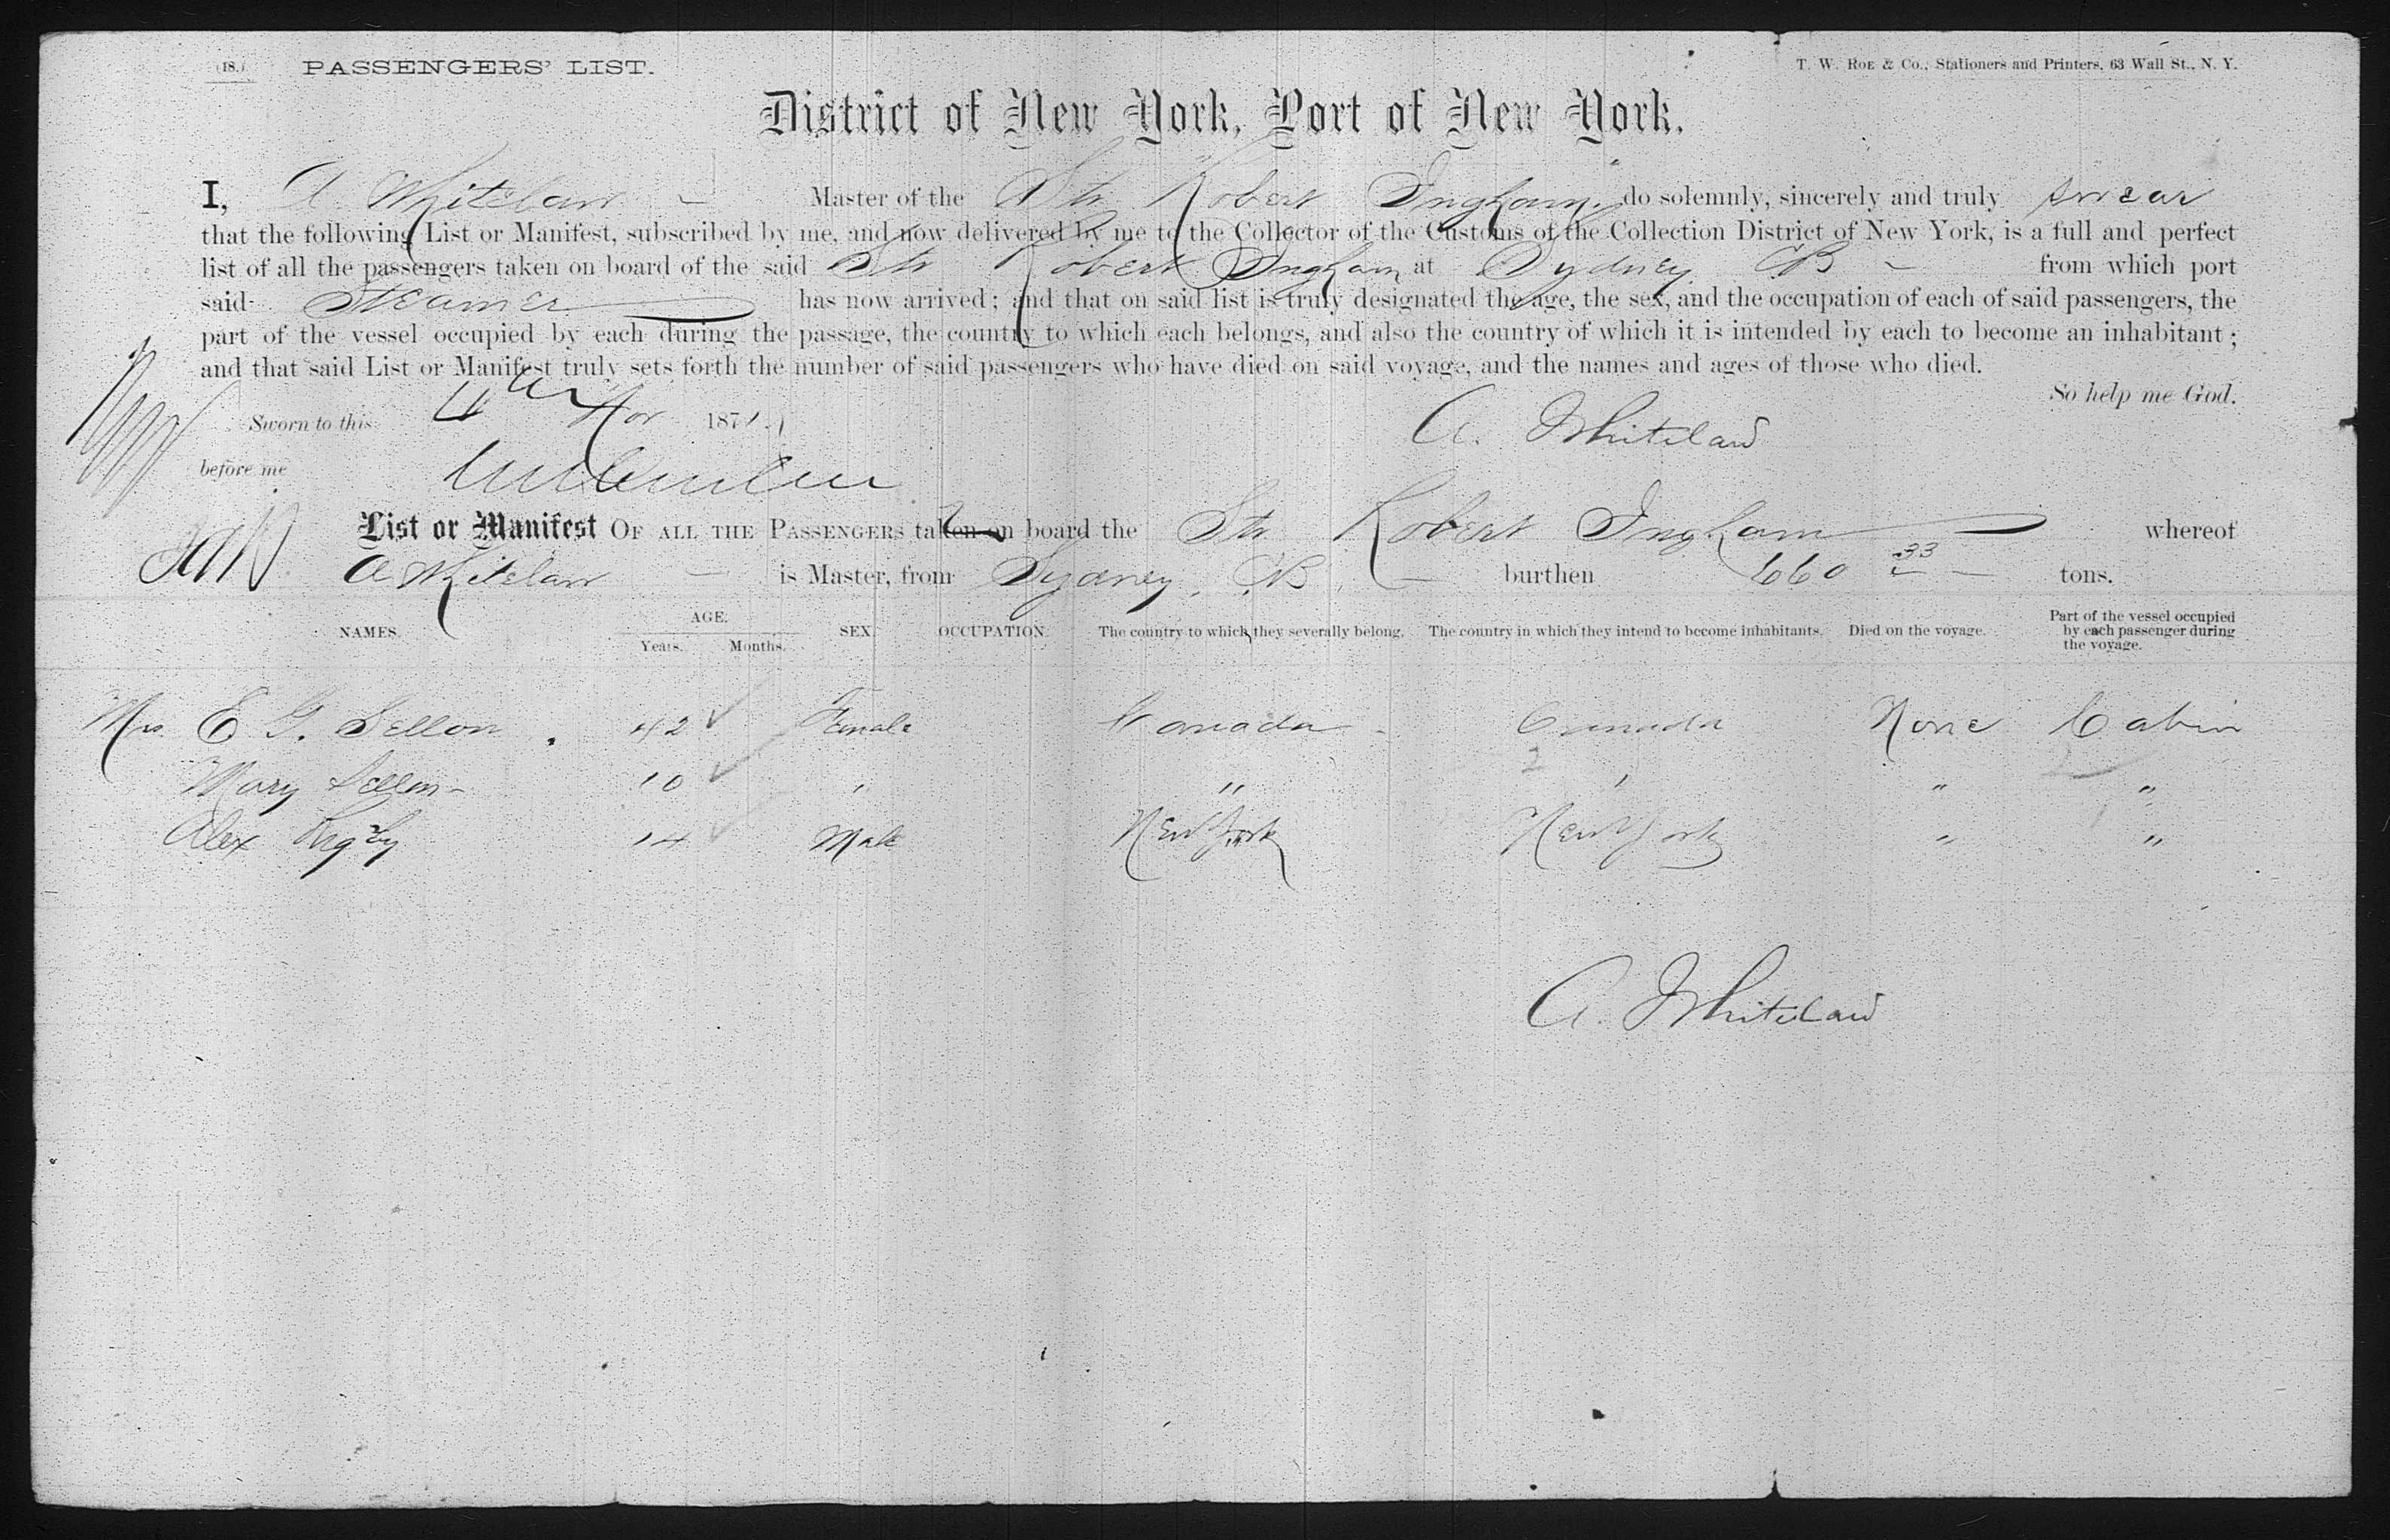 (18.) PASSENGERS' LIST. T. W. ROE & Co., Stationers and Printers, 63 Wall St., N. Y.
District of New York, Port of New York.
I, A Whitelaw Master of the Str Robert Ingham, do solemnly, sincerely and truly swear
that the following List or Manifest, subscribed by me, and now delivered by me to the Collector of the Customs of the Collection District of New York, is a full and perfect
list of all the passengers taken on board of the said Str Robert Ingham at Sydney CB from which port
said Steamer has now arrived; and that on said list is truly designated the age, the sex, and the occupation of each of said passengers, the
part of the vessel occupied by each during the passage, the country to which each belongs, and also the country of which it is intended by each to become an inhabitant;
and that said List or Manifest truly sets forth the number of said passengers who have died on said voyage, and the names and ages of those who died.
So help me God.
Sworn to this 4th Nov 1871.
A. Whitelaw
before me
List or Manifest OF ALL THE PASSENGERS taken on board the Str Robert Ingham whereof
A Whitelaw is Master, from Sydney, CB. burthen 660 33 tons.
NAMES. AGE. Years. Months. SEX. OCCUPATION. The country to which they severally belong. The country in which they intend to become inhabitants. Died on the voyage. Part of the vessel occupied by each passenger during the voyage.
Mrs. E G. Sellon. 42 Female Canada Canada None Cabin
Mary Sellon 10 " " " " "
Alex Rigby 14 Male New York New York " "
A. Whitelaw